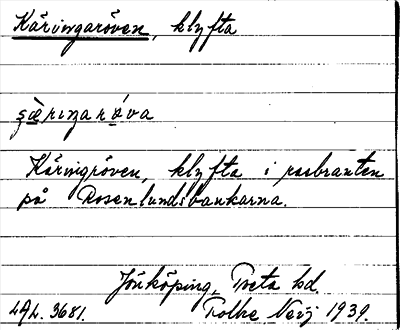 Käringaröven, klyfta
şæ̀rıŋaròva
Käringröven, klyfta i rasbranten
på Rosenlundsbankarna.
Jönköping, Tveta hd.
LAL. 3681. Folke Neij 1939.